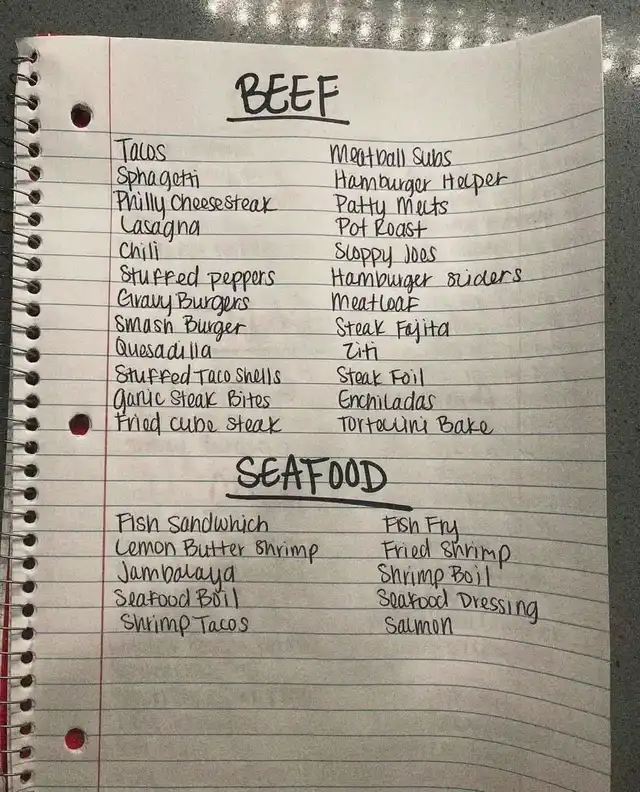 BEEF
Tacos Meatball Subs
Sphagetti Hamburger Helper
Philly Cheesesteak Patty Melts
Lasagna Pot Roast
Chili Sloppy Joes
Stuffed peppers Hamburger sliders
Gravy Burgers Meatloaf
Smash Burger Steak Fajita
Quesadilla Ziti
Stuffed Taco Shells Steak Foil
Garlic Steak Bites Enchiladas
Fried Cube Steak Tortellini Bake
SEAFOOD
Fish Sandwhich Fish Fry
Lemon Butter Shrimp Fried Shrimp
Jambalaya Shrimp Boil
Seafood Boil Seafood Dressing
Shrimp Tacos Salmon